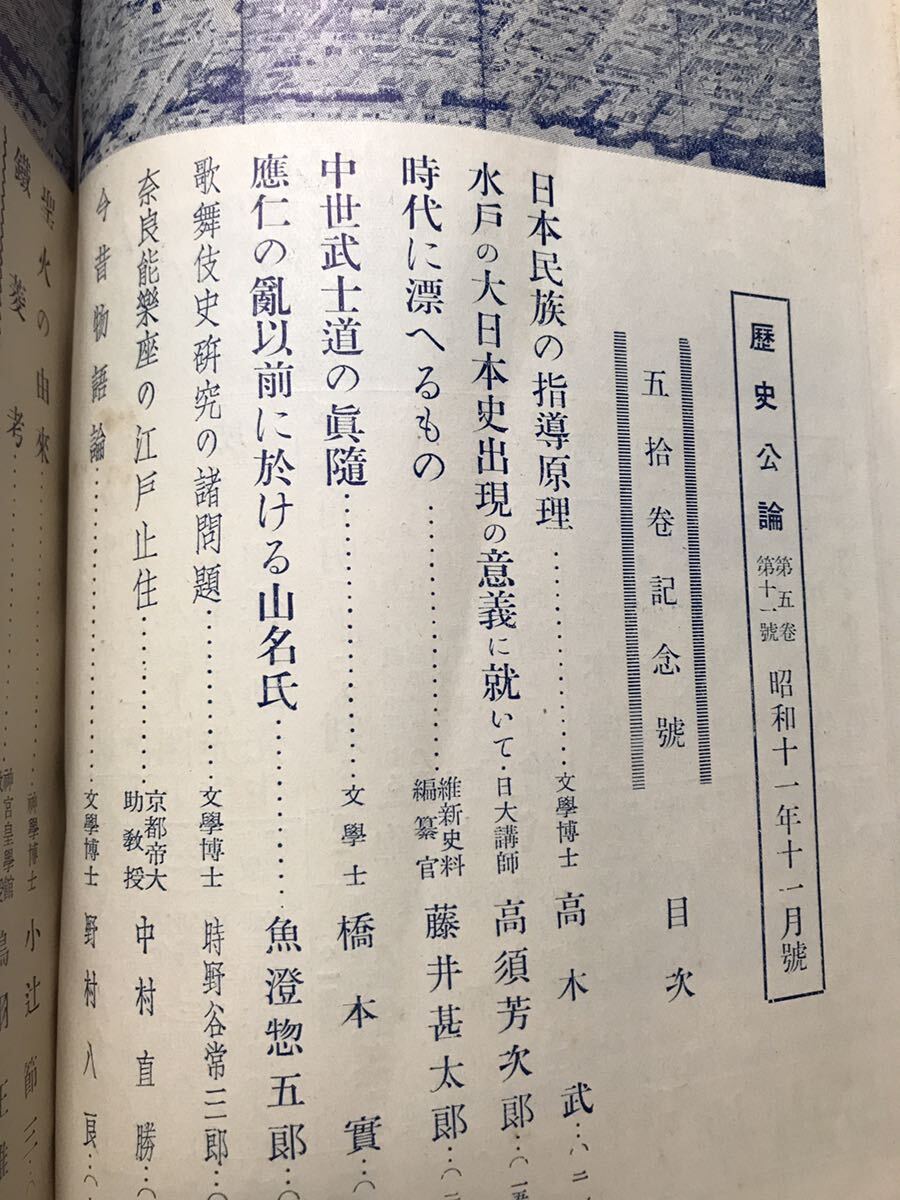 歷史公論 第五卷 第十一號 昭和十一年十一月號
五拾卷記念號
目次
日本民族の指導原理…………文學博士 高木武…(二
水戸の大日本史出現の意義に就いて・日大講師 高須芳次郎…(一五
時代に漂へるもの…………維新史料編纂官 藤井甚太郎…(
中世武士道の眞隨…………文學士 橋本實…(
應仁の亂以前に於ける山名氏…………魚澄惣五郎…(
歌舞伎史硏究の諸問題…………文學博士 時野谷常三郎…(
奈良能樂座の江戸止住…………京都帝大助敎授 中村直勝…(
今昔物語論…………文學博士 野村八良…(
聖火の由來…………神學博士 小辻節三…(
鐵菱考…………神宮皇學館